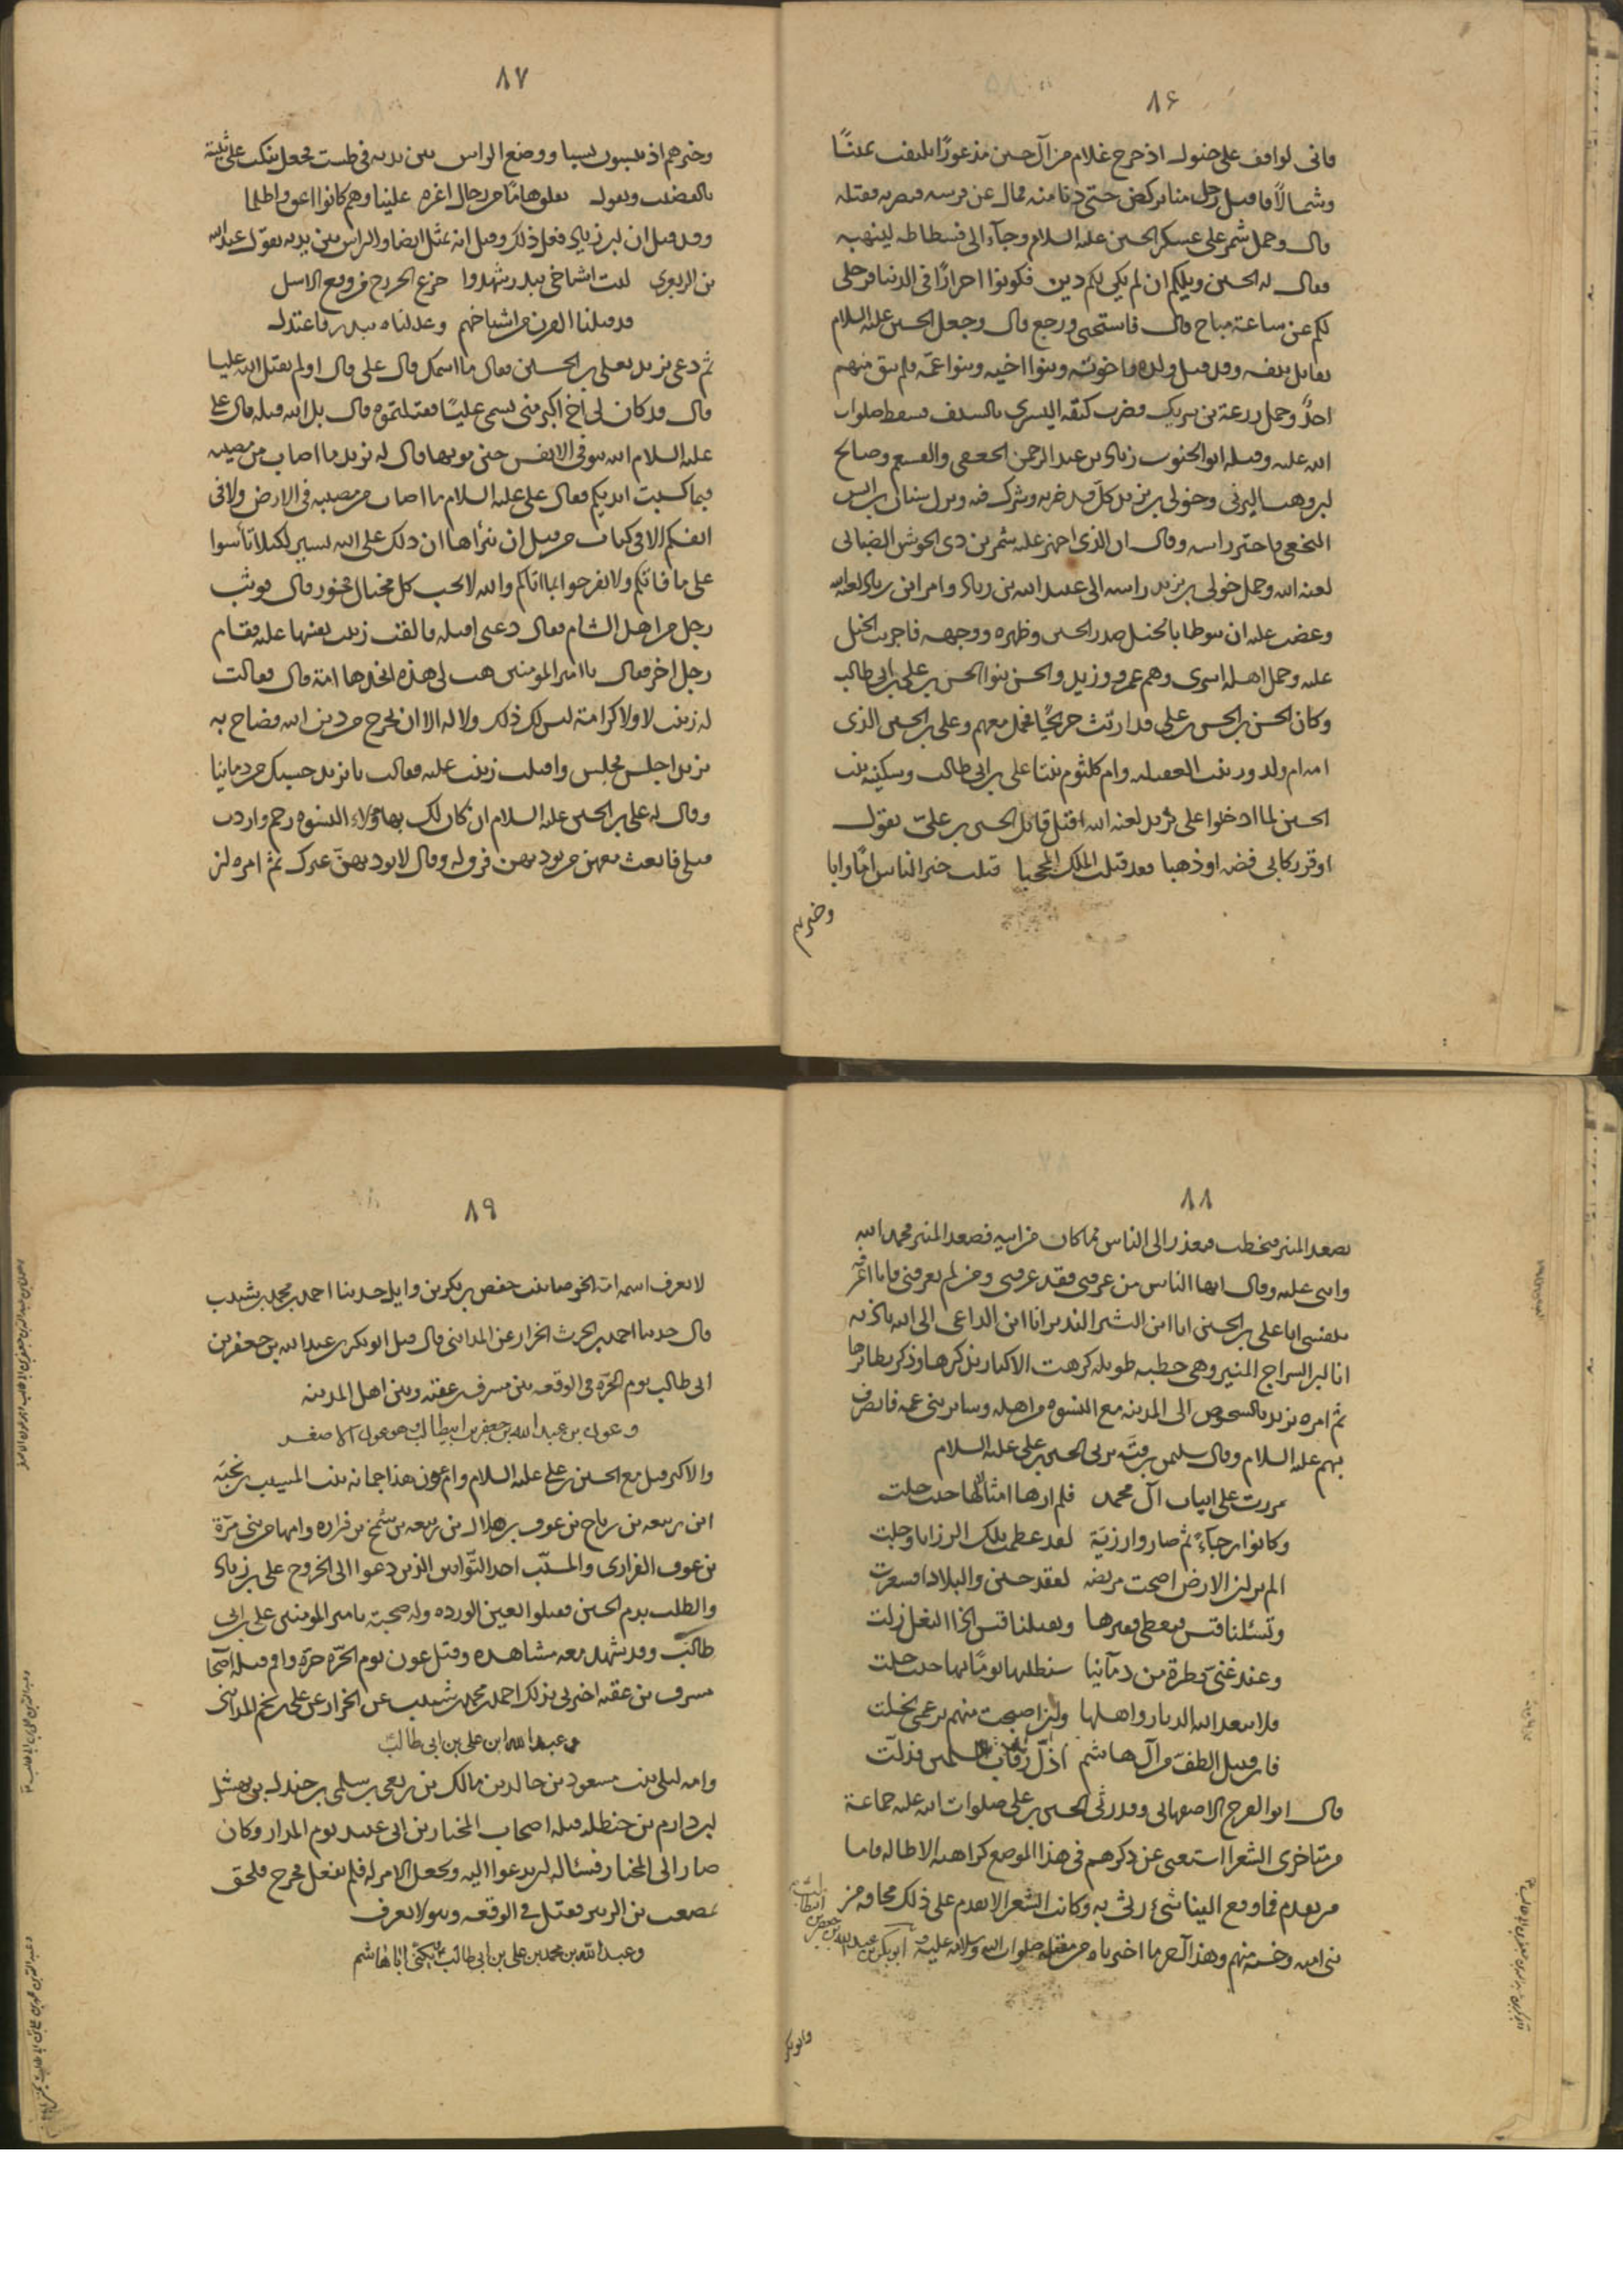 ٨۶
فانى لواقف على خيول اذ خرج غلام من آل حسين مذعورًا يلتفت يمينًا
وشمالًا فاقبل رجل منا يركض حتى دنا منه فمال عن فرسه فضربه فقتله
قال وحمل شمر على عسكر الحسين عليه السلام وجآء الى فسطاطه لينهبه
فقال له الحسين ويلكم ان لم يكن لكم دين فكونوا احرارًا فى الدنيا فرحلى
لكم عن ساعة مباح قال فاستحيى ورجع قال وجعل الحسين عليه السلام
يقاتل بنفسه وقد قتل ولده واخوته وبنوا اخيه وبنوا عمّه فلم يبق منهم
احدٌ وحمل زرعة بن شريك فضرب كتفه اليسرى بالسيف فسقط صلوات
الله عليه وقتله ابو الجنوب زياد بن عبد الرحمن الجعفى والقشعم وصالح
بن وهب اليزنى وخولى بن يزيد كلّ قد ضربه وشرك فيه ونزل سنان بن انس
النخعى فاحتز راسه وقال ان الذى اجهز عليه شمر بن ذى الجوشن الضبابى
لعنه الله وحمل خولى بن يزيد راسه الى عبيد الله بن زياد وامر ابن زياد لعنه الله
وغضب عليه ان يوطا بالخيل صدر الحسين وظهره ووجهه فاجريت الخيل
عليه وحمل اهله اسرى وهم عمرو وزيد والحسن بنوا الحسن بن على بن ابى طالب
وكان الحسن بن الحسن بن على قد ارتث جريحًا فحمل معهم وعلى بن الحسين الذى
امه ام ولد وزينب العقيله وام كلثوم بنتا على بن ابى طالب وسكينه بنت
الحسين لما ادخلوا على يزيد لعنه الله اقبل قاتل الحسين بن علىّ يقول
اوقر ركابى فضه او ذهبا فقد قتلت الملك المحجبا قتلت خير الناس امًّا وابا
وخيرهم
٨٧
وخيرهم اذ ينسبون نسبا ووضع الراس بين يديه فى طست فجعل ينكت على ثنيته
بالقضيب ويقول نفلق هامًا من رجال اعزه علينا وهم كانوا اعق واظلما
وقد قيل ان ابن زياد فعل ذلك وقيل انه تمثل ايضا والراس بين يديه بقول عبد الله
بن الزبعرى ليت اشياخى ببدر شهدوا جزع الخزرج من وقع الاسل
قد قتلنا القرن من اشياخهم وعدلناه ببدر فاعتدل
ثم دعى يزيد بعلى بن الحسين فقال ما اسمك قال على قال اولم يقتل الله عليا
قال قد كان لى اخ اكبر منى يسمى عليًا فقتلتموه قال بل الله قتله قال على
عليه السلام الله يتوفى الانفس حين موتها قال له يزيد ما اصاب من مصيبه
فبما كسبت ايديكم فقال على عليه السلام ما اصاب من مصيبه فى الارض ولا فى
انفسكم الا فى كتاب من قبل ان نبرأها ان ذلك على الله يسير لكيلا تأسوا
على ما فاتكم ولا تفرحوا بما اتاكم والله لا يحب كل مختال فخور قال فوثب
رجل من اهل الشام فقال دعنى اقتله فالقت زينب نفسها عليه فقام
رجل اخر فقال يا امير المؤمنين هب لى هذه اتخذها امة قال فقالت
له زينب لا ولا كرامة ليس لك ذلك ولا له الا ان يخرج من دين الله فصاح به
يزيد اجلس فجلس واقبلت زينب عليه فقالت يا يزيد حسبك من دمائنا
وقال له على بن الحسين عليه السلام ان كان لك بهؤلاء النسوه رحم واردت
قتلى فابعث معهن من يؤديهن فرق له وقال لا يوديهنّ غيرك ثم امره ان
٨٨
يصعد المنبر فيخطب فيعذر الى الناس مما كان من ابيه فصعد المنبر فحمد الله
واثنى عليه وقال ايها الناس من عرفنى فقد عرفنى ومن لم يعرفنى فانا اعرّفه
بنفسى انا على بن الحسين انا ابن البشير النذير انا ابن الداعى الى الله باذنه
انا ابن السراج المنير وهى خطبه طويله كرهت الاكثار بذكرها وذكر نظائرها
ثم امره يزيد بالشخوص الى المدينه مع النسوه من اهله وسائر بنى عمه فانصرف
بهم عليه السلام وقال سليمن بن قتّه يرثى الحسين بن على عليه السلام
مررت على ابيات آل محمد فلم ارها امثالها حيث حلت
وكانوا رجآءً ثم صاروا رزيّة لقد عظمت تلك الرزايا وجلت
الم تر ان الارض اضحت مريضه لفقد حسين والبلاد اقشعرت
وتسئلنا قيس فنعطى فقيرها وتقتلنا قيس اذا النعل زلت
وعند غنىّ قطرة من دمآئنا سنطلبها يومًا بها حيث حلت
فلا يبعد الله الديار واهلها وان اصبحت منهم برغمى تخلت
فان قتيل الطف من آل هاشم اذلّ رقاب المسلمين فذلّت
قال ابو الفرج الاصفهانى وقد رثى الحسين بن على صلوات الله عليه جماعة
من متاخرى الشعرا استغنى عن ذكرهم فى هذا الموضع كراهيه الاطاله واما
من تقدم فما وقع الينا شئ رثى به وكانت الشعرا لا تقدم على ذلك مخافة من
بنى اميه وخشية منهم وهذا آخر ما اخبرناه من مقتله صلوات الله وسلامه عليه وابو بكر بن عبد الله
بن جعفر بن ابيطالب
وابو بكر
٨٩
لا يعرف اسمه امه الخوصا بنت حفص بن بكر بن وايل حدثنا احمد بن محمد بن شبيب
قال حدثنا احمد بن الحرث الخزاز عن المداينى قال قتل ابو بكر بن عبد الله بن جعفر بن
ابى طالب يوم الحرّه فى الوقعه بين مسرف بن عقبه وبين اهل المدينه
وعون بن عبد الله بن جعفر بن ابيطالب وهو عون الاصغر
والاكبر قتل مع الحسين بن على عليه السلام وام عون هذا جمانه بنت المسيب بن نجبه
ابن ربيعه بن رياح بن عوف بن هلال بن ربيعه بن شمخ بن فزاره وامها من بنى مرّة
بن عوف الفزارى والمسيّب احد التوّابين الذين دعوا الى الخروج على بن زياد
والطلب بدم الحسين فقتلوا بعين الورده وله صحبة بامير المومنين على بن ابى
طالب وقد شهد معه مشاهده وقتل عون يوم الحرّه حرّة واقم قتله اصحاب
مسرف بن عقبه اخبرنى بذلك احمد بن محمد بن شبيب عن الخزاز عن على بن محمد المداينى
وعبد الله ابن على بن ابى طالب
وامه ليلى بنت مسعود بن خالد بن مالك بن ربعى بن سلمى بن جندل بن نهشل
بن دارم بن حنظله قتله اصحاب المختار بن ابى عبيد يوم المدار وكان
صار الى المختار فسئاله ان يدعوا اليه ويجعل الامر له فلم يفعل فخرج فلحق
بمصعب بن الزبير فقتل فى الوقعه وهو لا يعرف
وعبد الله بن محمد بن على بن ابى طالب يكنى ابا هاشم